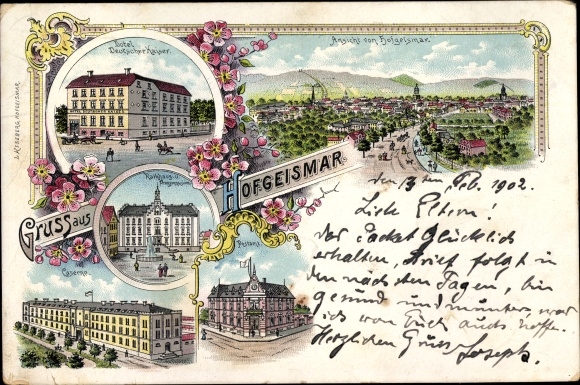 Hotel
Deutscher Kaiser.
Ansicht von Hofgeismar.
HOTEL DEUTSCHER KAISER
Rathhaus u.
GRUSS AUS HOFGEISMAR.
Caserne
Postamt
den 13ten Feb. 1902.
Liebe Eltern!
Das Packet Glücklich
erhalten, Brief folgt in
den nächsten Tagen, bin
gesund und munter, was
ich von Euch auch hoffe.
Herzlichen Gruss Joseph.
HOFGEISMAR.